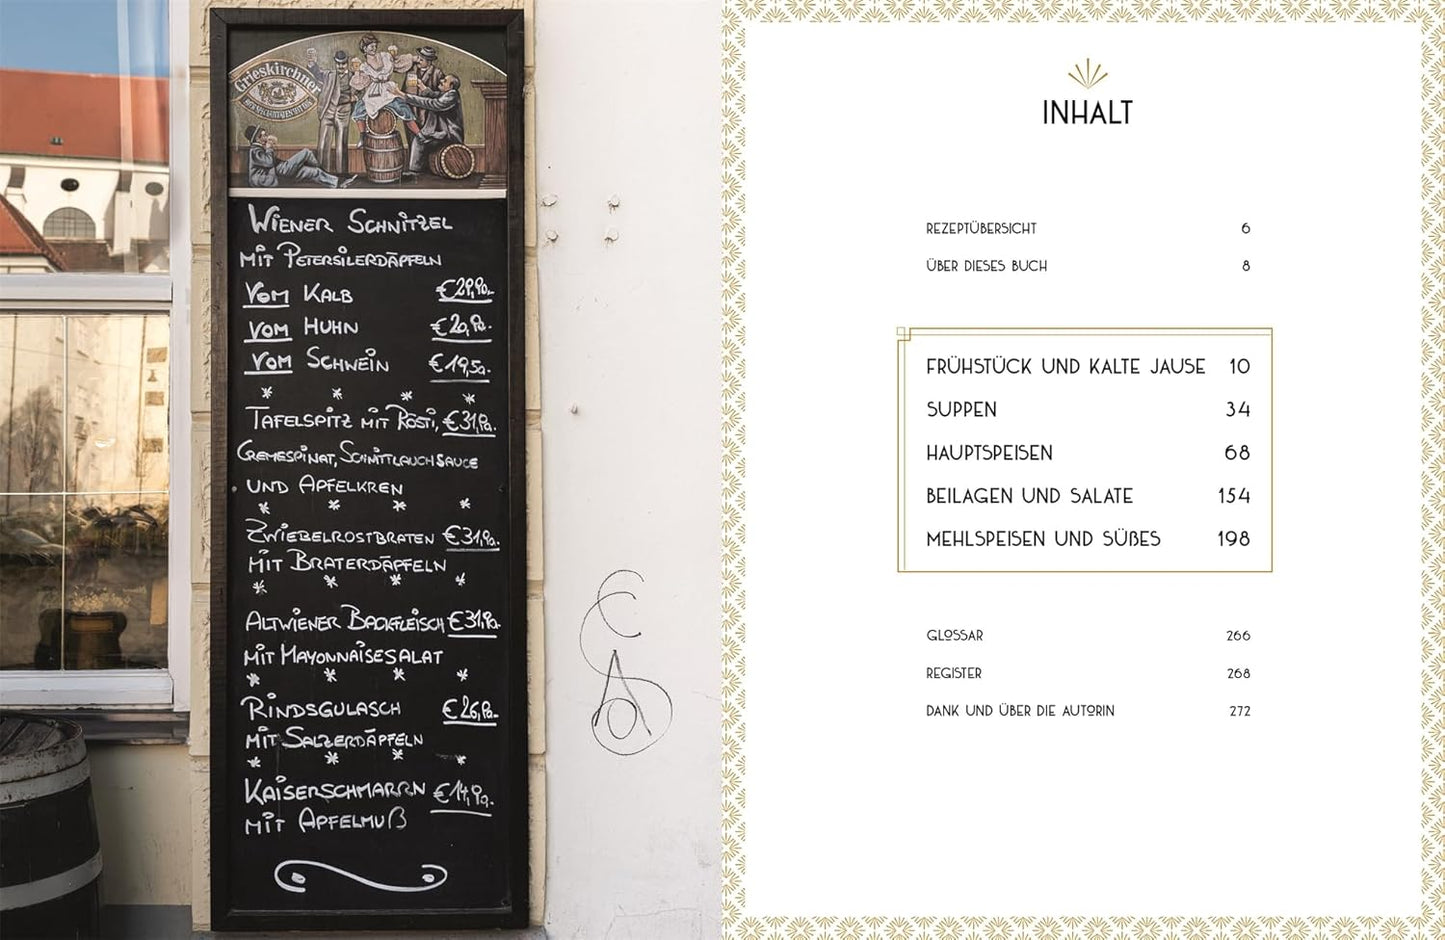 Grieskirchner
BIERSPEZIALITÄTEN SEIT 1708
WIENER SCHNITZEL
MIT PETERSILERDÄPFELN
VOM KALB €29,90.-
VOM HUHN €20,90.-
VOM SCHWEIN €19,50.-
* * * *
TAFELSPITZ MIT RÖSTI, €31,90.-
CREMESPINAT, SCHNITTLAUCHSAUCE
UND APFELKREN
* * * *
ZWIEBELROSTBRATEN €31,90.-
MIT BRATERDÄPFELN
* * * *
ALTWIENER BACKFLEISCH €31,90.-
MIT MAYONNAISESALAT
* * * *
RINDSGULASCH €26,90.-
MIT SALZERDÄPFELN
* * * *
KAISERSCHMARRN €14,90.-
MIT APFELMUß
INHALT
REZEPTÜBERSICHT 6
ÜBER DIESES BUCH 8
FRÜHSTÜCK UND KALTE JAUSE 10
SUPPEN 34
HAUPTSPEISEN 68
BEILAGEN UND SALATE 154
MEHLSPEISEN UND SÜßES 198
GLOSSAR 266
REGISTER 268
DANK UND ÜBER DIE AUTORIN 272